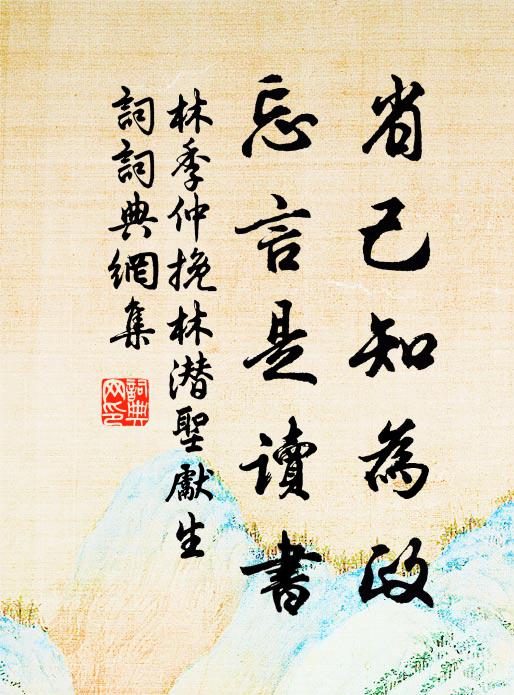 省己知為政
忘言是讀書
林季仲挽林潜聖獻生
詞詞典網集
詞典
网印